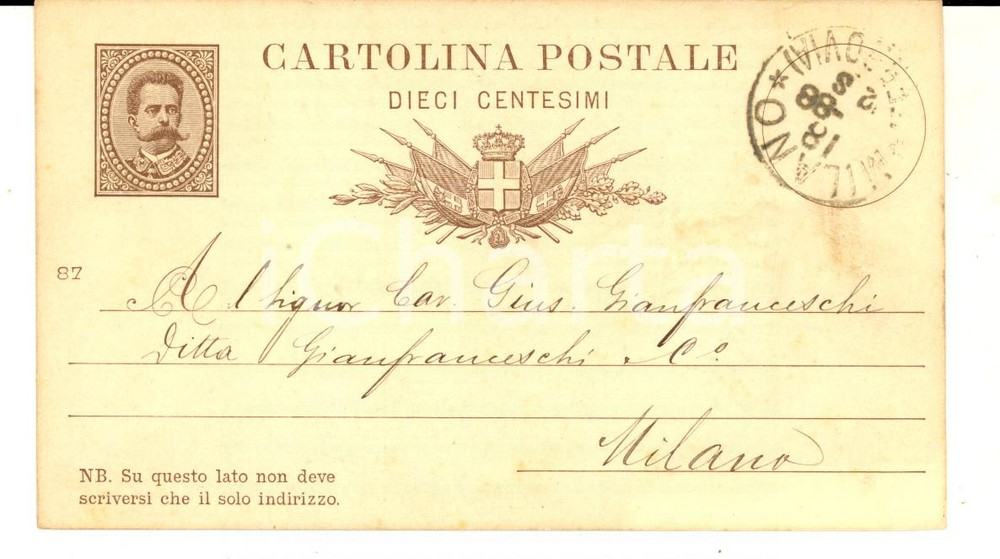 CARTOLINA POSTALE
DIECI CENTESIMI
MILANO *
87
Al Signor Cav. Gius. Gianfranceschi
Ditta Gianfranceschi & Co.
Milano
NB. Su questo lato non deve
scriversi che il solo indirizzo.
iCharta